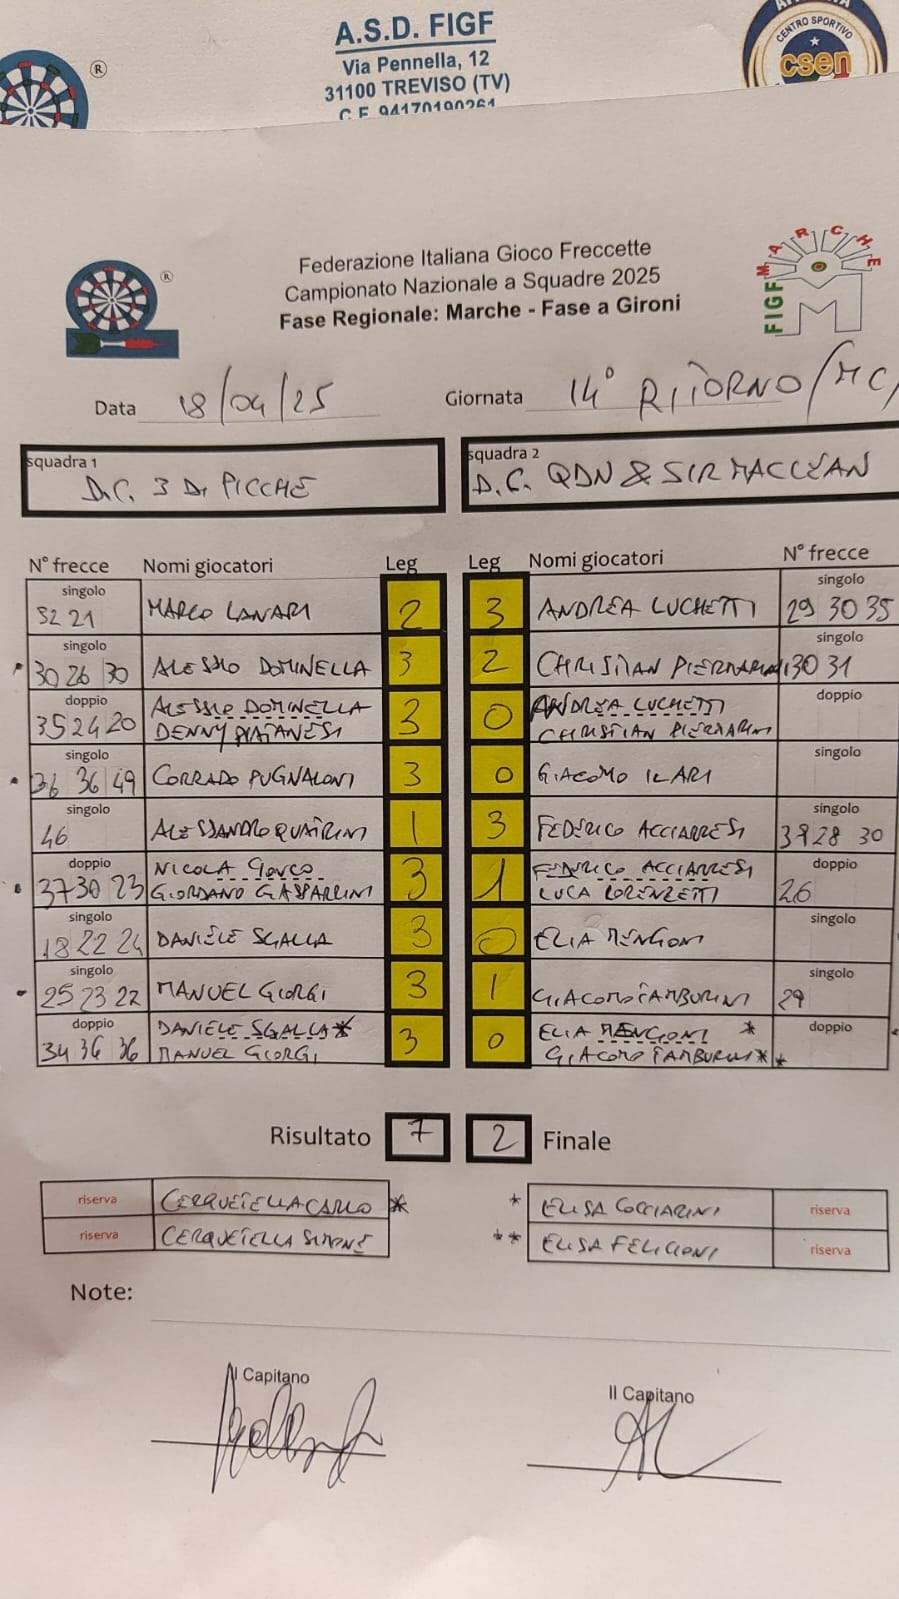 A.S.D. FIGF
Via Pennella, 12
31100 TREVISO (TV)
C.F. 94170190261
CENTRO SPORTIVO
csen
®
Federazione Italiana Gioco Freccette
Campionato Nazionale a Squadre 2025
Fase Regionale: Marche - Fase a Gironi
®
FIGF MARCHE
Data 18/04/25 Giornata 14° RITORNO/MC
squadra 1 squadra 2
D.C. 3 DI PICCHE D.C. QDN & SIR MACCLEAN
N° frecce Nomi giocatori Leg Leg Nomi giocatori N° frecce
singolo singolo
32 21 MARCO LANARI 2 3 ANDREA LUCHETTI 29 30 35
singolo singolo
30 26 30 ALESSIO DOMINELLA 3 2 CHRISTIAN PIERMARINI 30 31
doppio ALESSIO DOMINELLA ANDREA LUCHETTI doppio
35 24 20 DENNY PIATANESI 3 0 CHRISTIAN PIERMARINI
singolo singolo
36 36 49 CORRADO PUGNALONI 3 0 GIACOMO ILARI
singolo singolo
46 ALESSANDRO QUATRINI 1 3 FEDERICO ACCIARRESI 28 30
doppio NICOLA FEDERICO ACCIARRESI doppio
37 30 23 GIORDANO GASPARRINI 3 1 LUCA LORENZETTI 26
singolo singolo
18 22 24 DANIELE SGALLA 3 0 ELIA MENGONI
singolo singolo
25 23 22 MANUEL GIORGI 3 1 GIACOMO TAMBURINI 29
doppio DANIELE SGALLA* ELIA MENGONI * doppio
34 36 36 MANUEL GIORGI 3 0 GIACOMO TAMBURINI**
Risultato 7 2 Finale
riserva CERQUETELLA CARLO * * ELISA COCCIARINI riserva
riserva CERQUETELLA SIMONE ** ELISA FELICIONI riserva
Note:
Il Capitano Il Capitano